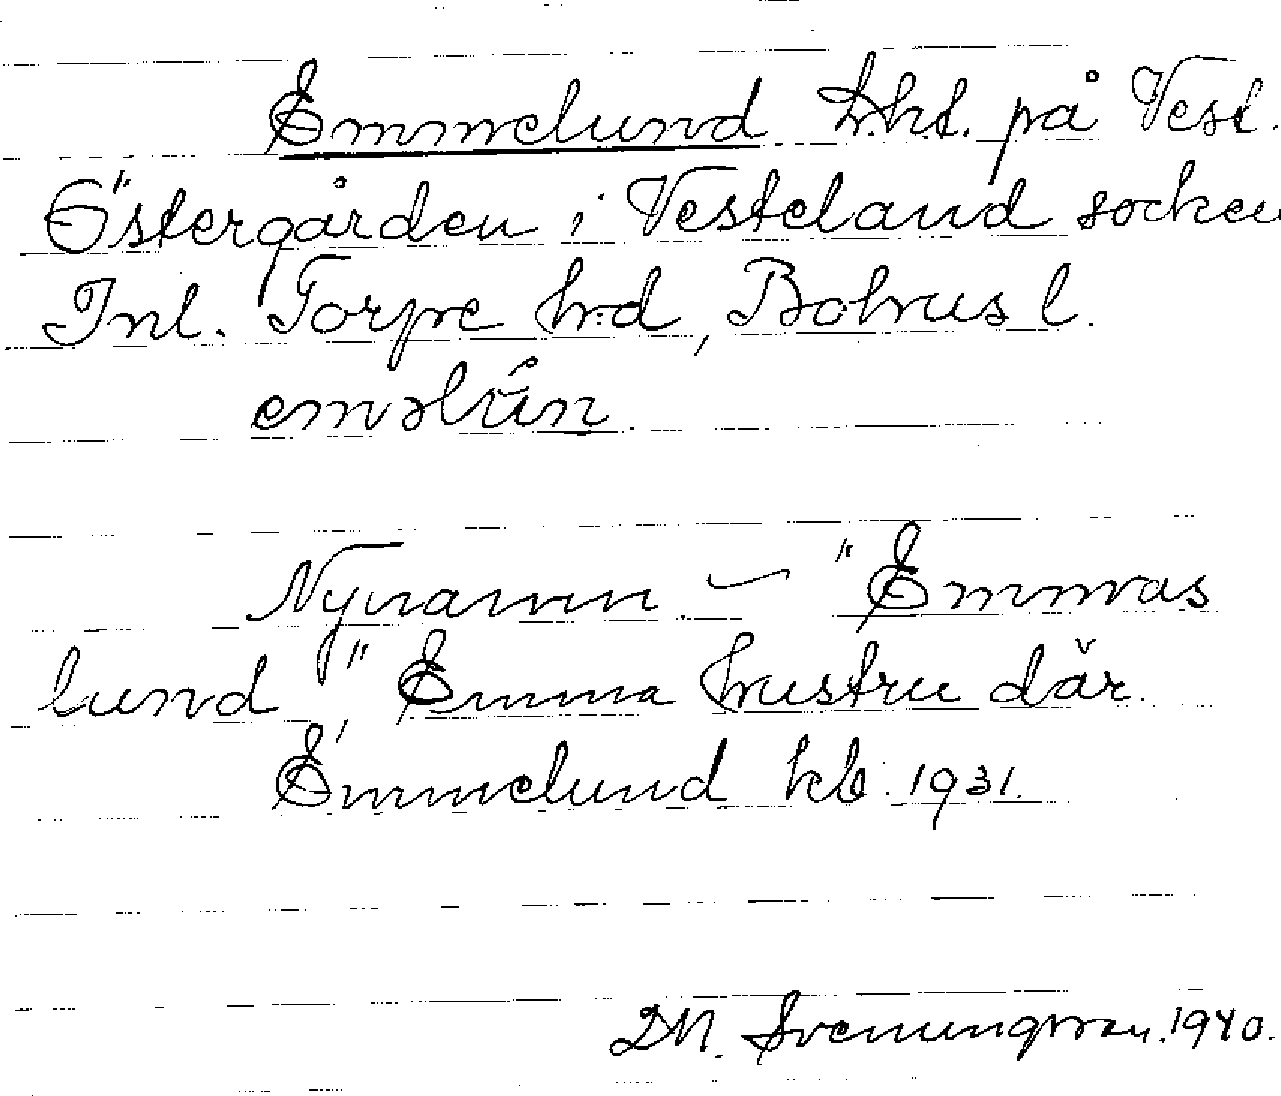 Emmelund Lht. på Vest.
Östergården i Vesteland socken
Inl. Torpe hrd, Bohus l.
eməlún
Nynamn. – "Emmas
lund", Emma hustru där.
Emmelund kb. 1931.
DN. Svenungsson. 1940.